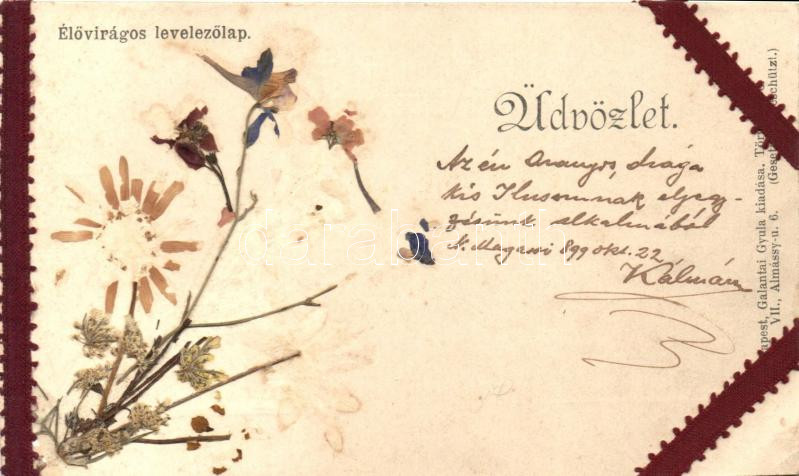 Élővirágos levelezőlap.
Üdvözlet.
Az én Aranyos, drága
kis Ilusomnak eljegy-
zésünk alkalmából
N. Magasi 899 okt. 22
Kálmán
apest, Galantai Gyula kiadása.
VII., Almássy-u. 6.
darabanth